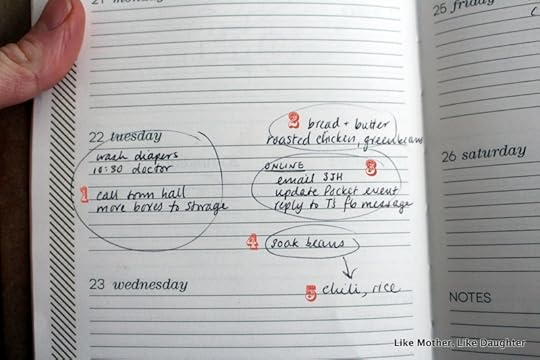 21 monday
25 friday
22 tuesday
wash diapers
10:30 doctor
1 call town hall
move boxes to storage
2 bread + butter
roasted chicken, greenbeans
ONLINE
3
email SJH
update Pocket event
reply to TS fb message
4 soak beans
23 wednesday
5 chili, rice
26 saturday
NOTES
Like Mother, Like Daughter